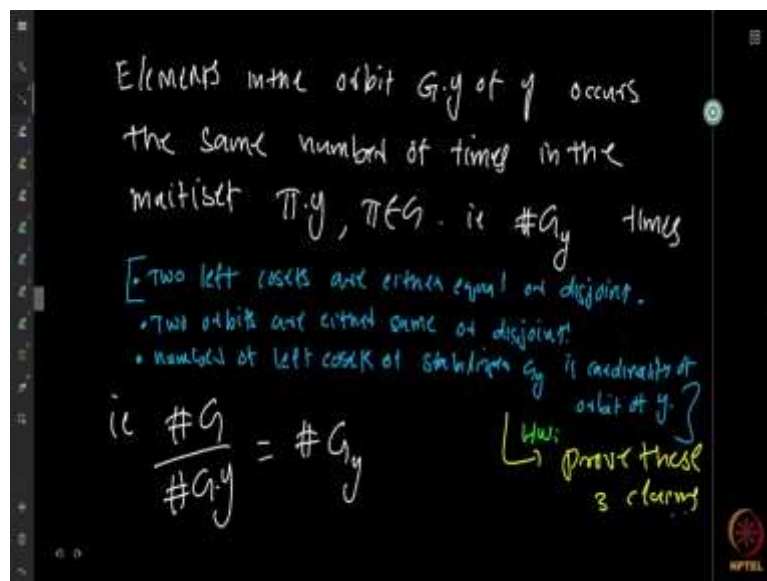 Elements in the orbit G.y of y occurs
the same number of times in the
multiset π.y, π∈G. ie #G_y times
[• Two left cosets are either equal or disjoint.
• Two orbits are either same or disjoint.
• number of left cosets of stabilizer G_y is cardinality of
orbit of y.]
ie #G / #G.y = #G_y
HW:
→ prove these
3 claims
NPTEL